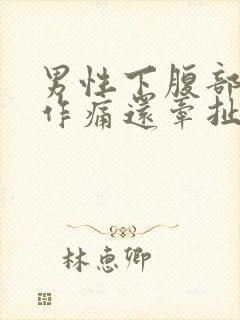 男性下腹部
作痛還牽扯
林惠卿